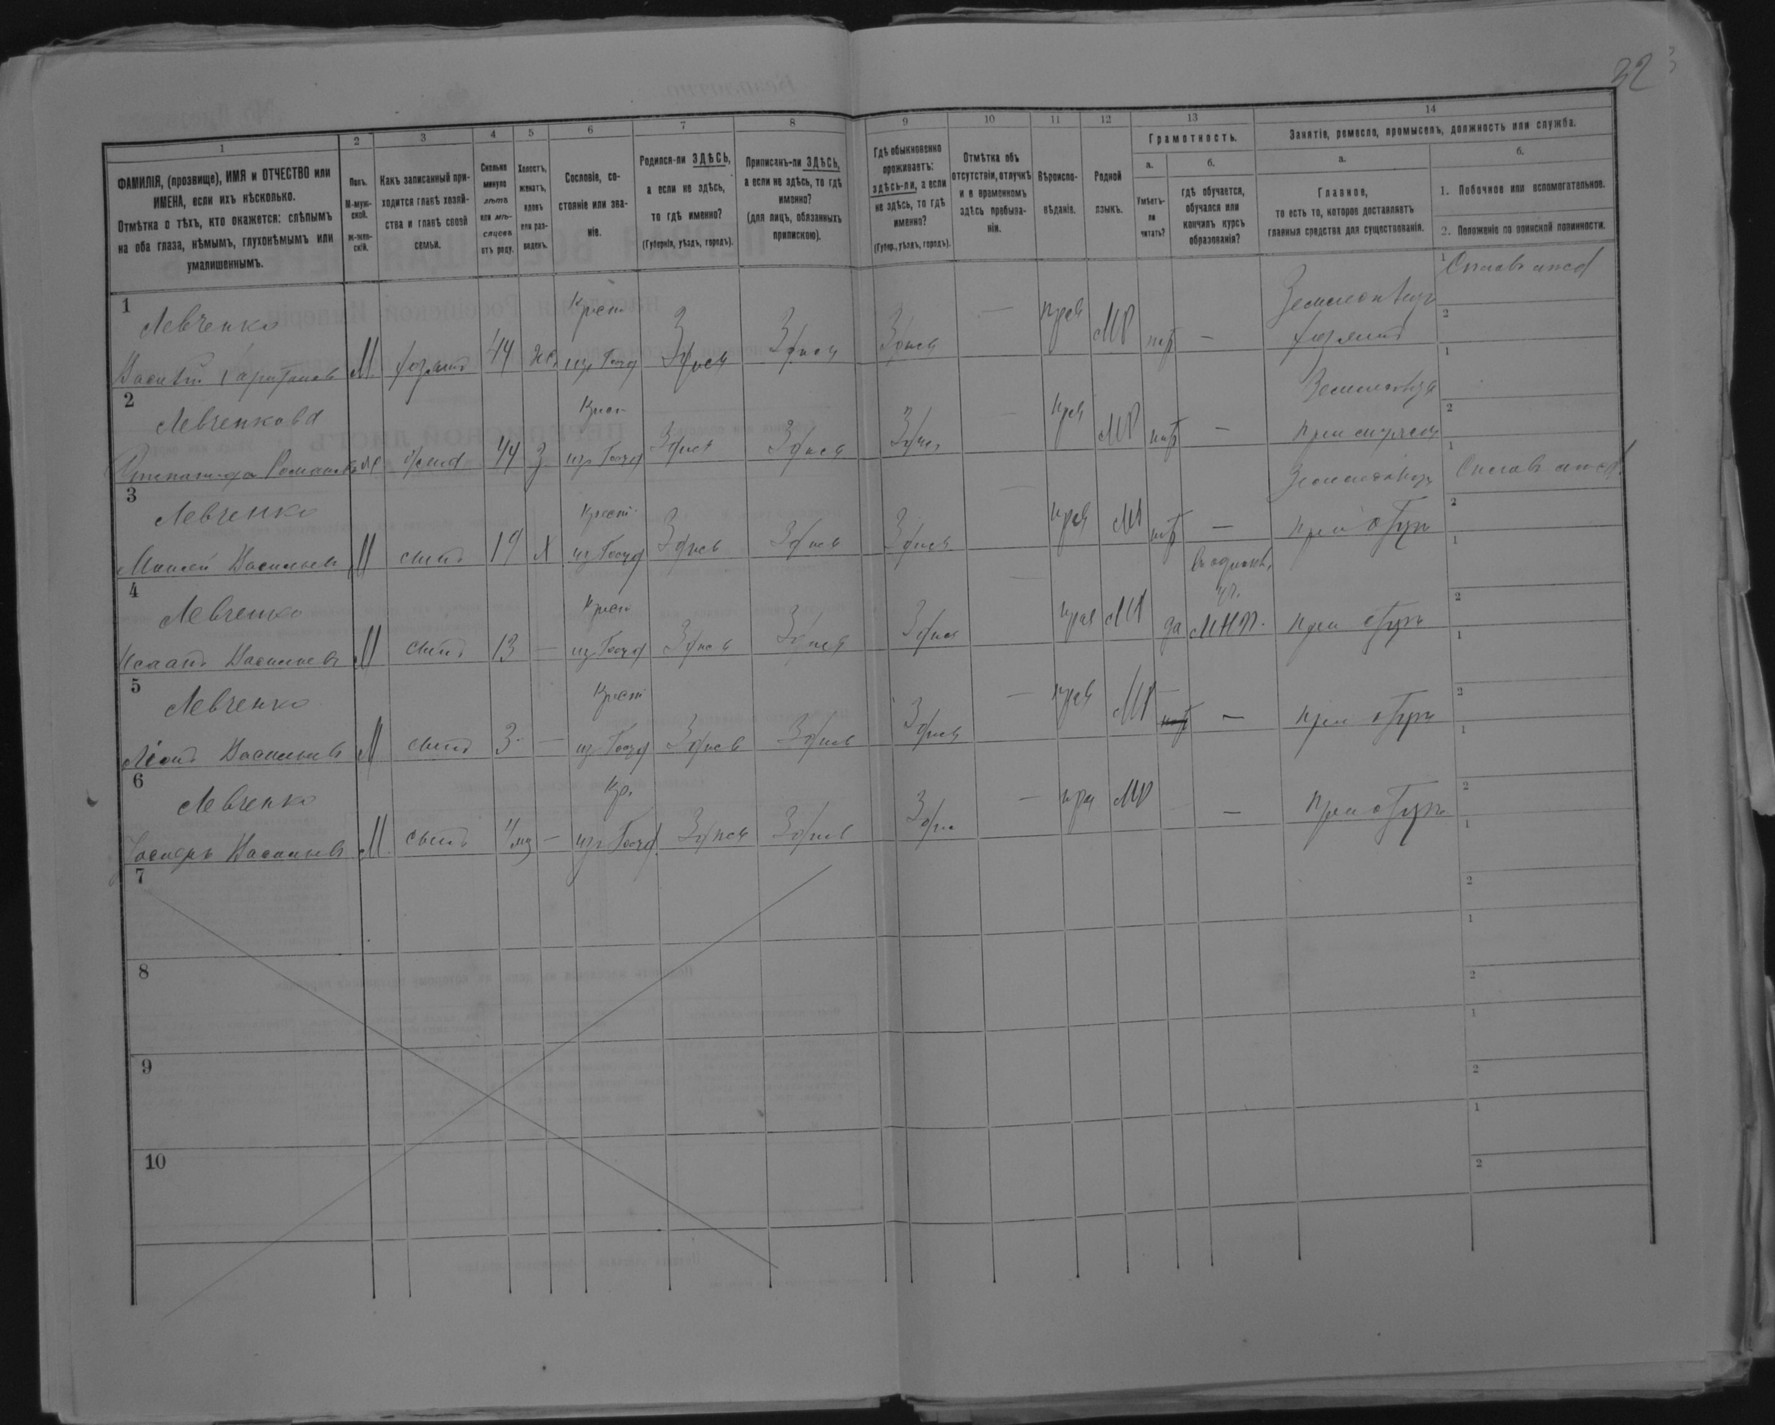 32
1
ФАМИЛІЯ, (прозвище), ИМЯ и ОТЧЕСТВО или
ИМЕНА, если ихъ нѣсколько.
Отмѣтка о тѣхъ, кто окажется: слѣпымъ
на оба глаза, нѣмымъ, глухонѣмымъ или
умалишеннымъ.
2
Полъ.
М-муж-
ской.
Ж-жен-
скій.
3
Какъ записанный при-
ходится главѣ хозяй-
ства и главѣ своей
семьи.
4
Сколько
минуло
лѣтъ
или мѣ-
сяцевъ
отъ роду.
5
Холостъ,
женатъ,
вдовъ
или раз-
веденъ.
6
Сословіе, со-
стояніе или зва-
ніе.
7
Родился-ли ЗДѢСЬ,
а если не здѣсь,
то гдѣ именно?
(Губернія, уѣздъ, городъ).
8
Приписанъ-ли ЗДѢСЬ,
а если не здѣсь, то гдѣ
именно?
(для лицъ, обязанныхъ
припискою).
9
Гдѣ обыкновенно
проживаетъ:
здѣсь-ли, а если
не здѣсь, то гдѣ
именно?
(Губер., уѣздъ, городъ).
10
Отмѣтка объ
отсутствіи, отлучкѣ
и о временномъ
здѣсь пребыва-
ніи.
11
Вѣроиспо-
вѣданіе.
12
Родной
языкъ.
13
Грамотность.
а.
Умѣетъ-
ли
читать?
б.
гдѣ обучается,
обучался или
кончилъ курсъ
образованія?
14
Занятіе, ремесло, промыселъ, должность или служба.
а.
Главное,
то есть то, которое доставляетъ
главныя средства для существованія.
б.
1. Побочное или вспомогательное.
2. Положеніе по воинской повинности.
1
Левченко
М
44
Крест
из Госуд
Здѣсь
Здѣсь
Здѣсь
—
прав
МР
нѣт
—
1
2
2
Левченкова
44
из Госуд
Здѣсь
Здѣсь
Здѣсь
—
прав
МР
нѣт
—
при мужѣ
1
2
3
Левченко
Васильев
М
сынъ
19
Х
Крест
из Госуд
Здѣсь
Здѣсь
Здѣсь
—
прав
МР
нѣт
—
при отцѣ
1
2
4
Левченко
Исаакъ Васильевъ
М
сынъ
13
—
Крест
из Госуд
Здѣсь
Здѣсь
Здѣсь
—
прав
МР
да
МНП.
при отцѣ
1
2
5
Левченко
Васильевъ
М
сынъ
3
—
Крест
из Госуд
Здѣсь
Здѣсь
Здѣсь
—
прав
МР
нѣт
—
при отцѣ
1
2
6
Левченко
Васильевъ
М
сынъ
—
Кр.
из Госуд.
Здѣсь
Здѣсь
Здѣсь
—
прав
МР
—
при отцѣ
1
2
7
1
2
8
1
2
9
1
2
10
1
2